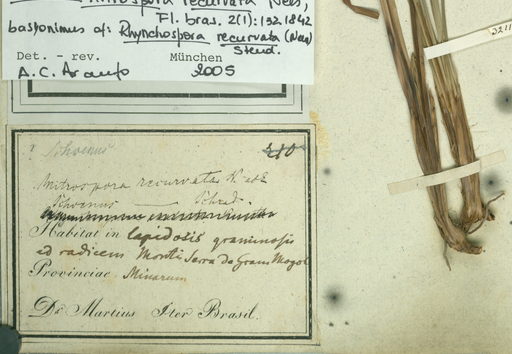 Mitrospora recurvata Nees,
Fl. bras. 2(1):132 1842
basionimus of: Rhynchospora recurvata (Nees)
Steud.
Det. - rev. München
A.C. Araujo 2005
3211
Schoenus 210
Mitrospora recurvata N. ab E
Schoenus — Schrad.
Habitat in lapidosis graminosis
ad radicem Montis Serra do Gram Mogol
Provinciae Minarum
Dr Martius Iter Brasil.